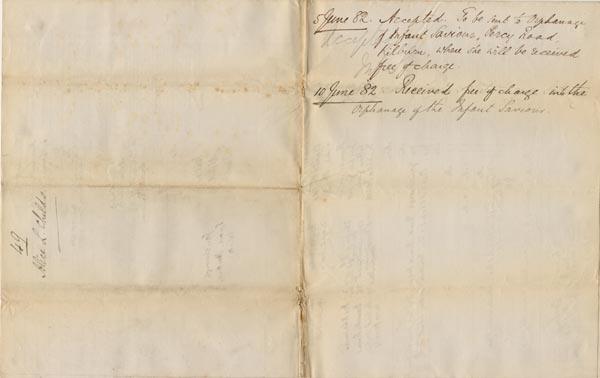 5 June 82. Accepted. To be sent to Orphanage
of Infant Saviour, Percy Road
Kilburn, where she will be received
free of charge.
10 June 82 Received free of charge into the
Orphanage of the Infant Saviour.
49
Alice L. Childs